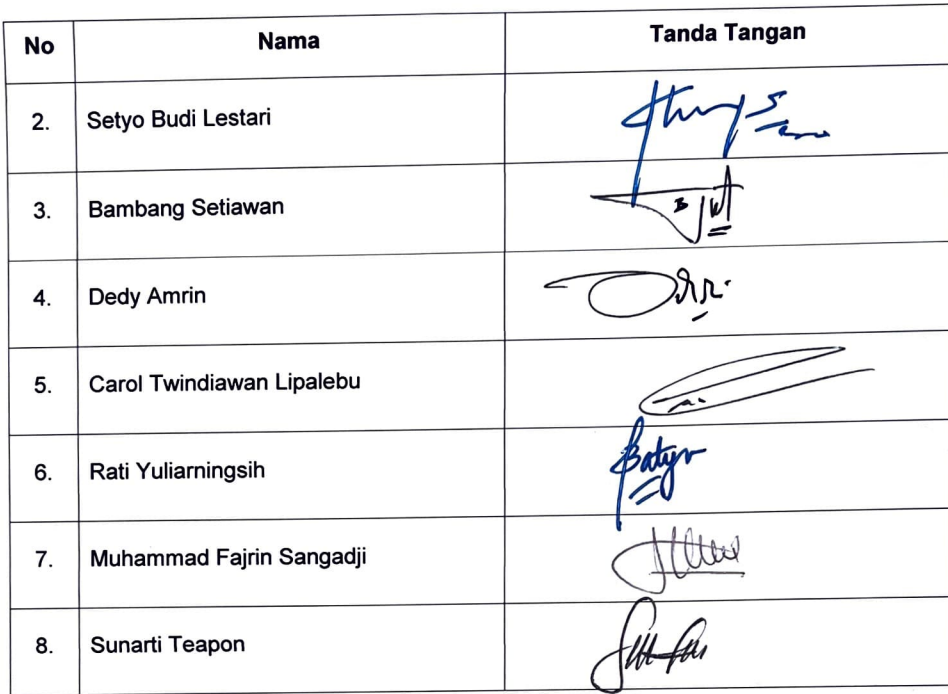 No Nama Tanda Tangan
2. Setyo Budi Lestari
3. Bambang Setiawan
4. Dedy Amrin
5. Carol Twindiawan Lipalebu
6. Rati Yuliarningsih
7. Muhammad Fajrin Sangadji
8. Sunarti Teapon